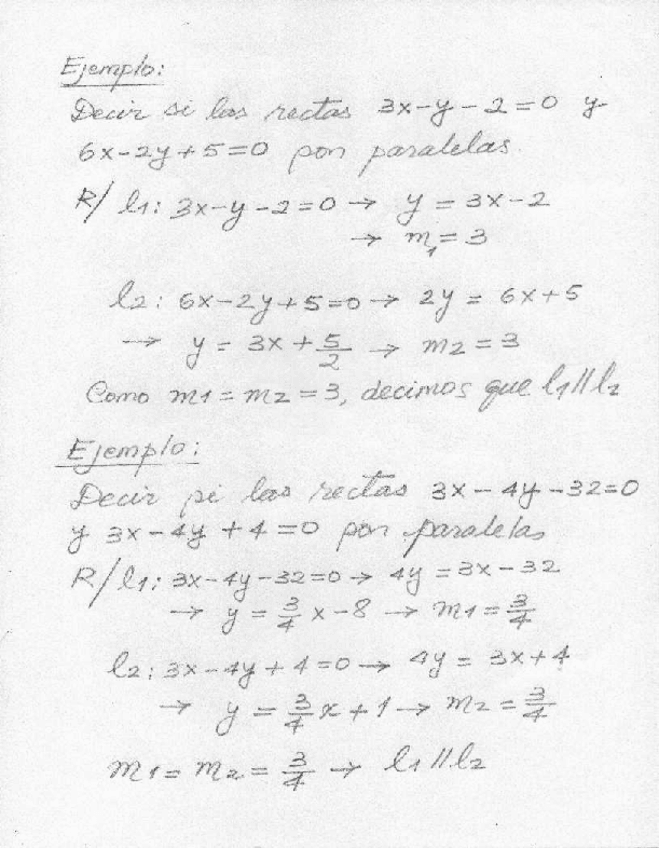 Ejemplo:
Decir si las rectas 3x-y-2=0 y
6x-2y+5=0 son paralelas.
R/ l1: 3x-y-2=0 → y = 3x-2
→ m1=3
l2: 6x-2y+5=0 → 2y = 6x+5
→ y = 3x + 5/2 → m2=3
Como m1=m2=3, decimos que l1//l2
Ejemplo:
Decir si las rectas 3x-4y-32=0
y 3x-4y+4=0 son paralelas
R/ l1: 3x-4y-32=0 → 4y=3x-32
→ y = 3/4 x-8 → m1=3/4
l2: 3x-4y+4=0 → 4y = 3x+4
→ y = 3/4 x+1 → m2=3/4
m1= m2 = 3/4 → l1//l2